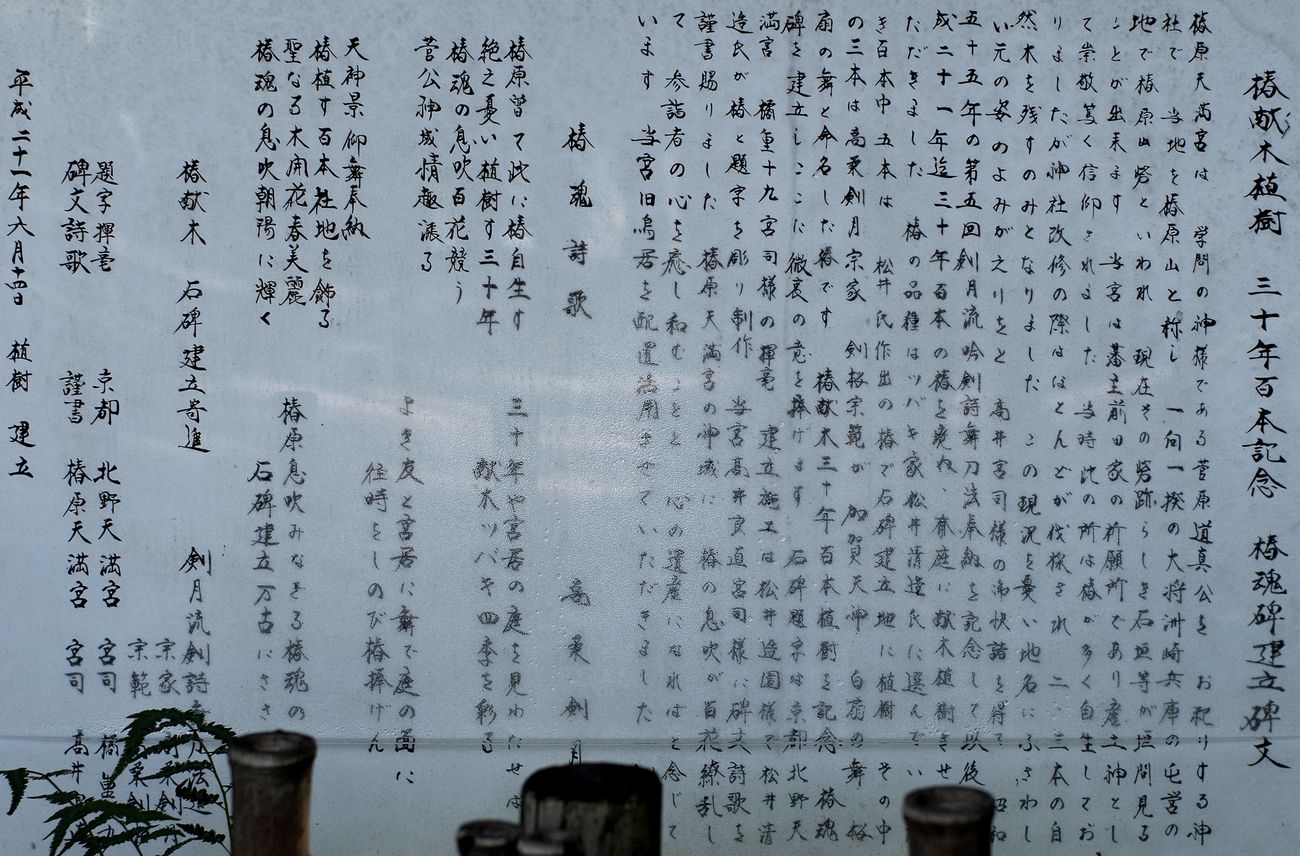 椿献木植樹 三十年百本記念 椿魂碑建立碑文
椿原天満宮は 学問の神様である菅原道真公を お祀りする神
社で 当地を椿原山と称し 一向一揆の大将洲崎兵庫の屯営の
地で椿原山砦といわれ 現在その砦跡らしき石垣等が垣間見る
ことが出来ます 当宮は藩主前田家の祈願所であり産土神とし
て崇敬篤く信仰されました 当時此の所は椿が多く自生してお
りましたが神社改修の際ほとんどが伐採され 二、三本の自
然木を残すのみとなりました この現況を憂い地名にふさわし
い元の姿のよみがえりをと 高井宮司様の御快諾を得て 昭和
五十五年の第五回剣月流吟剣詩舞刀法奉納を記念して以後
成二十一年迄三十年百本の椿を 斎庭に献木植樹させ
ただきました 椿の品種はツバキ家松井清造氏に選んでい
き百本中五本は 松井氏作出の椿で石碑建立地に植樹 その中
の三本は高乗剣月宗家 剣桜宗範が 加賀天神 白扇の舞 桜
扇の舞と命名した椿です 椿献木三十年百本植樹を記念 椿魂
碑を建立しここに微衷の意を捧げます 石碑題字は京都北野天
満宮 橘重十九宮司様の揮毫 建立施工は松井造園様で松井清
造氏が椿と題字を彫り制作 当宮高井良直宮司様に碑文詩歌を
謹書賜りました 椿原天満宮の神域に 椿の息吹が百花繚乱し
て 参詣者の心を癒し和むことを 心の遺産になればと念じて
います 当宮旧鳥居を配置活用させていただきました
椿魂詩歌 高乗剣月
椿原曽て此に椿自生す
絶之憂い植樹す三十年
椿魂の息吹百花競う
菅公神域情趣漲る
三十年や宮居の庭を見わたせは
献木ツバキ四季を彩る
天神景仰舞奉納
椿植す百本社地を飾る
聖なる木開花春美麗
椿魂の息吹朝陽に輝く
よき友と宮居に舞て庭の面に
往時をしのび椿捧げん
椿原息吹みなぎる椿魂の
石碑建立万古にささ
椿献木 石碑建立寄進 剣月流剣詩
宗家
宗範
題字揮毫 京都 北野天満宮 宮司 橘重
碑文詩歌 謹書 椿原天満宮 宮司 高井
平成二十一年六月十四日 植樹 建立